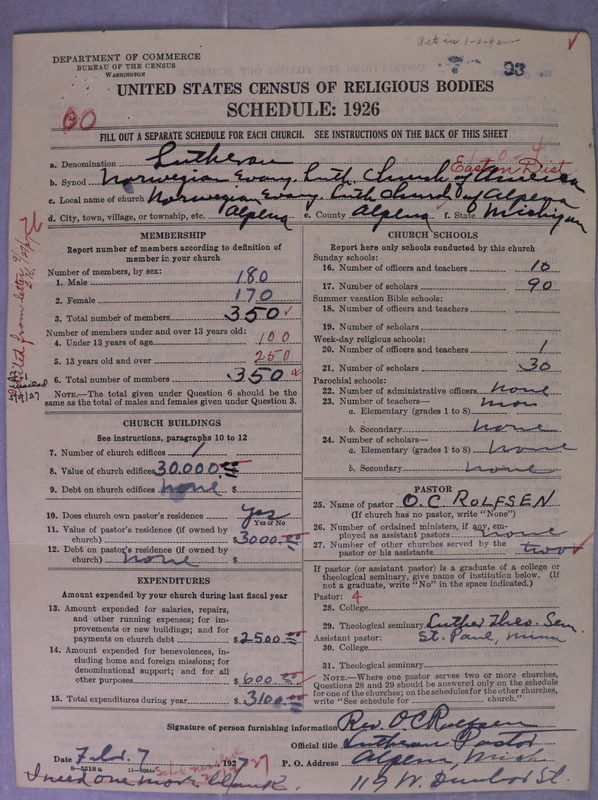 93
DEPARTMENT OF COMMERCE
BUREAU OF THE CENSUS
WASHINGTON
UNITED STATES CENSUS OF RELIGIOUS BODIES
SCHEDULE: 1926
60
FILL OUT A SEPARATE SCHEDULE FOR EACH CHURCH. SEE INSTRUCTIONS ON THE BACK OF THIS SHEET
a. Denomination Lutheran
Eastern Dist
b. Synod Norwegian Evang. Luth Church of America
c. Local name of church Norwegian Evang. Luth Church Of Alpena
d. City, town, village, or township, etc. Alpena e. County Alpena f. State Michigan
MEMBERSHIP
Report number of members according to definition of
member in your church
Number of members, by sex:
1. Male 180
2. Female 170
3. Total number of members 350
Number of members under and over 13 years old:
4. Under 13 years of age 100
5. 13 years old and over 250
6. Total number of members 350
NOTE.—The total given under Question 6 should be the
same as the total of males and females given under Question 3.
CHURCH BUILDINGS
See instructions, paragraphs 10 to 12
7. Number of church edifices 1
8. Value of church edifices $30000.00
9. Debt on church edifices none $
10. Does church own pastor's residence yes
Yes or No
11. Value of pastor's residence (if owned by
church) $3000.00
12. Debt on pastor's residence (if owned by
church) none $
EXPENDITURES
Amount expended by your church during last fiscal year
13. Amount expended for salaries, repairs,
and other running expenses; for im-
provements or new buildings; and for
payments on church debt $2500.00
14. Amount expended for benevolences, in-
cluding home and foreign missions; for
denominational support; and for all
other purposes $600.00
15. Total expenditures during year $3100.00
CHURCH SCHOOLS
Report here only schools conducted by this church
Sunday schools:
16. Number of officers and teachers 10
17. Number of scholars 90
Summer vacation Bible schools:
18. Number of officers and teachers
19. Number of scholars
Week-day religious schools:
20. Number of officers and teachers 1
21. Number of scholars 30
Parochial schools:
22. Number of administrative officers none
23. Number of teachers—
a. Elementary (grades 1 to 8)
b. Secondary none
24. Number of scholars—
a. Elementary (grades 1 to 8) none
b. Secondary none
PASTOR
25. Name of pastor O. C ROLFSEN
(If church has no pastor, write "None")
26. Number of ordained ministers, if any, em-
ployed as assistant pastors none
27. Number of other churches served by the
pastor or his assistants two
If pastor (or assistant pastor) is a graduate of a college or
theological seminary, give name of institution below. (If
not a graduate, write "No" in the space indicated.)
Pastor: 4
28. College
29. Theological seminary Luther Theo. Sem.
St. Paul, Minn
Assistant pastor:
30. College
31. Theological seminary
NOTE.—Where one pastor serves two or more churches,
Questions 28 and 29 should be answered only on the schedule
for one of the churches; on the schedules for the other churches,
write "See schedule for church."
Signature of person furnishing information Rev. O C Rolfsen
Official title Lutheran Pastor
Date Feb. 7, 1927 P. O. Address Alpena, Mich
119 W. Dunbar St.
I need one more blank.